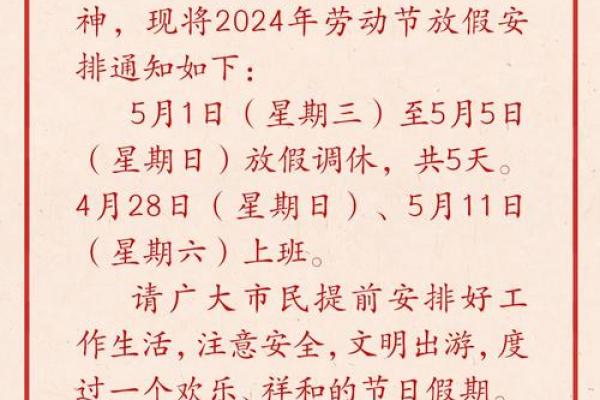 神，现将2024年劳动节放假安
排通知如下：
5月1日（星期三）至5月5日
（星期日）放假调休，共5天。
4月28日（星期日）、5月11日
（星期六）上班。
请广大市民提前安排好工
作生活，注意安全，文明出游，度
过一个欢乐、祥和的节日假期。